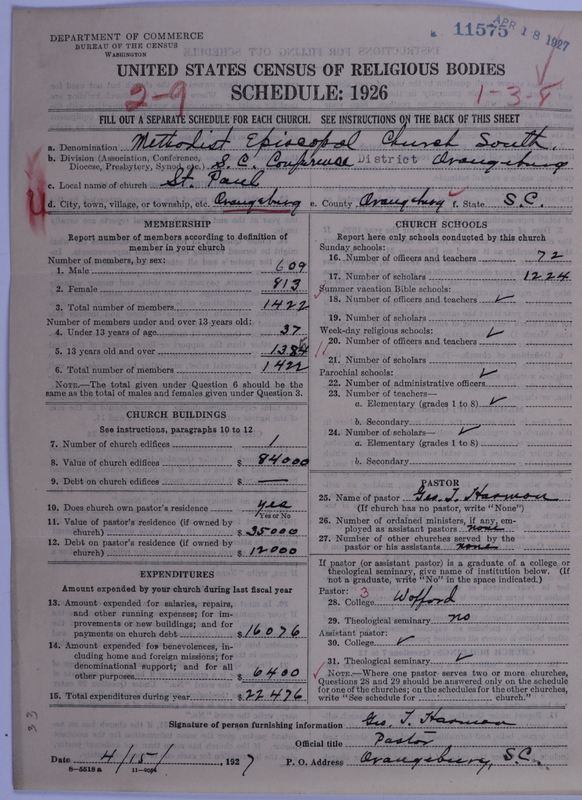 DEPARTMENT OF COMMERCE
BUREAU OF THE CENSUS
WASHINGTON
11575 APR 18 1927
UNITED STATES CENSUS OF RELIGIOUS BODIES
SCHEDULE: 1926
2-9
1-3-8
FILL OUT A SEPARATE SCHEDULE FOR EACH CHURCH. SEE INSTRUCTIONS ON THE BACK OF THIS SHEET
a. Denomination Methodist Episcopal Church South.
b. Division (Association, Conference, Diocese, Presbytery, Synod, etc.) S.C. Conference District Orangeburg
c. Local name of church St. Paul
d. City, town, village, or township, etc. Orangeburg e. County Orangeburg f. State S.C.
MEMBERSHIP
Report number of members according to definition of
member in your church
Number of members, by sex:
1. Male 609
2. Female 813
3. Total number of members 1422
Number of members under and over 13 years old:
4. Under 13 years of age 37
5. 13 years old and over 1385
6. Total number of members 1422
NOTE.—The total given under Question 6 should be the
same as the total of males and females given under Question 3.
CHURCH BUILDINGS
See instructions, paragraphs 10 to 12
7. Number of church edifices 1
8. Value of church edifices $ 84000
9. Debt on church edifices $ —
10. Does church own pastor's residence yes
Yes or No
11. Value of pastor's residence (if owned by
church) $ 35000
12. Debt on pastor's residence (if owned by
church) $ 12000
EXPENDITURES
Amount expended by your church during last fiscal year
13. Amount expended for salaries, repairs,
and other running expenses; for im-
provements or new buildings; and for
payments on church debt $ 16076
14. Amount expended for benevolences, in-
cluding home and foreign missions; for
denominational support; and for all
other purposes $ 6400
15. Total expenditures during year $ 22476
CHURCH SCHOOLS
Report here only schools conducted by this church
Sunday schools:
16. Number of officers and teachers 72
17. Number of scholars 1224
Summer vacation Bible schools:
18. Number of officers and teachers ✓
19. Number of scholars
Week-day religious schools: ✓
20. Number of officers and teachers
21. Number of scholars
Parochial schools: ✓
22. Number of administrative officers
23. Number of teachers—
a. Elementary (grades 1 to 8) ✓
b. Secondary
24. Number of scholars— ✓
a. Elementary (grades 1 to 8)
b. Secondary
PASTOR
25. Name of pastor Geo. T. Harmon
(If church has no pastor, write "None")
26. Number of ordained ministers, if any, em-
ployed as assistant pastors none
27. Number of other churches served by the
pastor or his assistants none
If pastor (or assistant pastor) is a graduate of a college or
theological seminary, give name of institution below. (If
not a graduate, write "No" in the space indicated.)
Pastor: 3
28. College Wofford
29. Theological seminary no
Assistant pastor:
30. College ✓
31. Theological seminary ✓
NOTE.—Where one pastor serves two or more churches,
Questions 28 and 29 should be answered only on the schedule
for one of the churches; on the schedules for the other churches,
write "See schedule for church."
Signature of person furnishing information Geo. T. Harmon
Official title Pastor
Date 4/15/ 1927 P. O. Address Orangeburg, S.C.
8—5518a
33